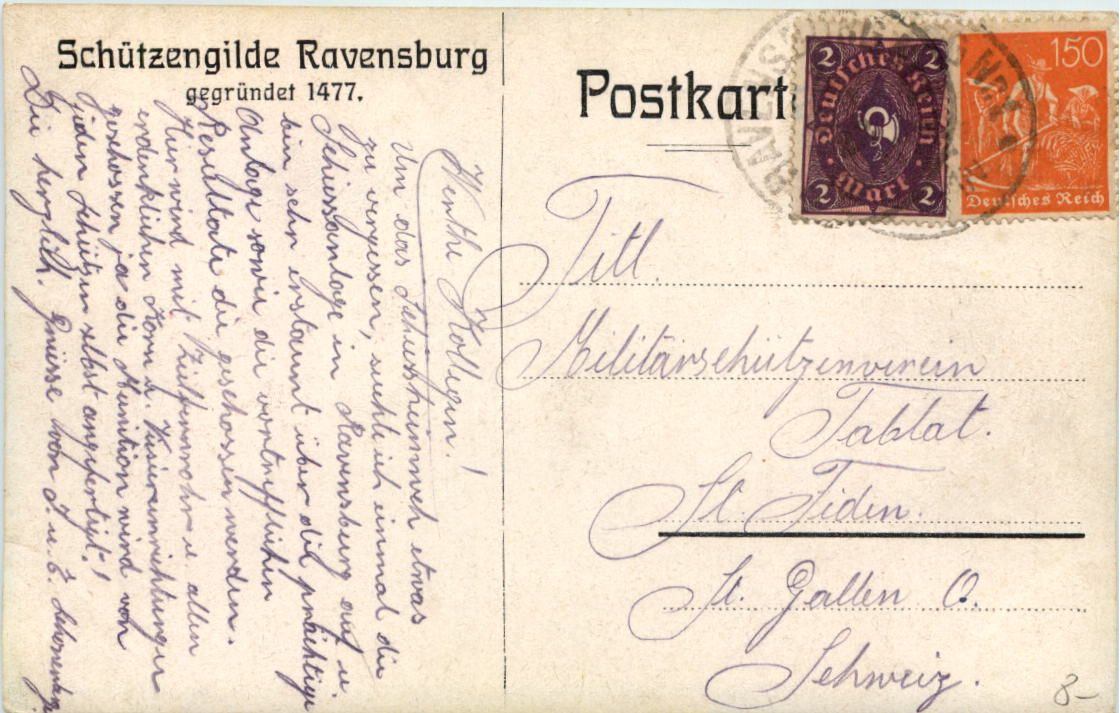 Schützengilde Ravensburg
gegründet 1477.
Postkart
2 2
Deutsches Reich
Mark
2 2
150
Deutsches Reich
Werthe Kollegen!
Um das Schiessheimweh etwas
zu vergessen, suchte ich einmal die
Schiessanlage in Ravensburg auf u.
bin sehr erstaunt über die prächtige
Anlage sowie die vortrefflichen
Resultate die geschossen werden.
Hier wird mit Zielfernrohr u. allen
erdenklichen Korn u. Visiereinrichtungen
geschossen ja die Munition wird von
jedem Schützen selbst angefertigt!
Die herzlich. Grüsse von J. u. E.
Titl.
Militärschützenverein
Tablat.
St. Fiden.
St. Gallen O.
Schweiz.
8-